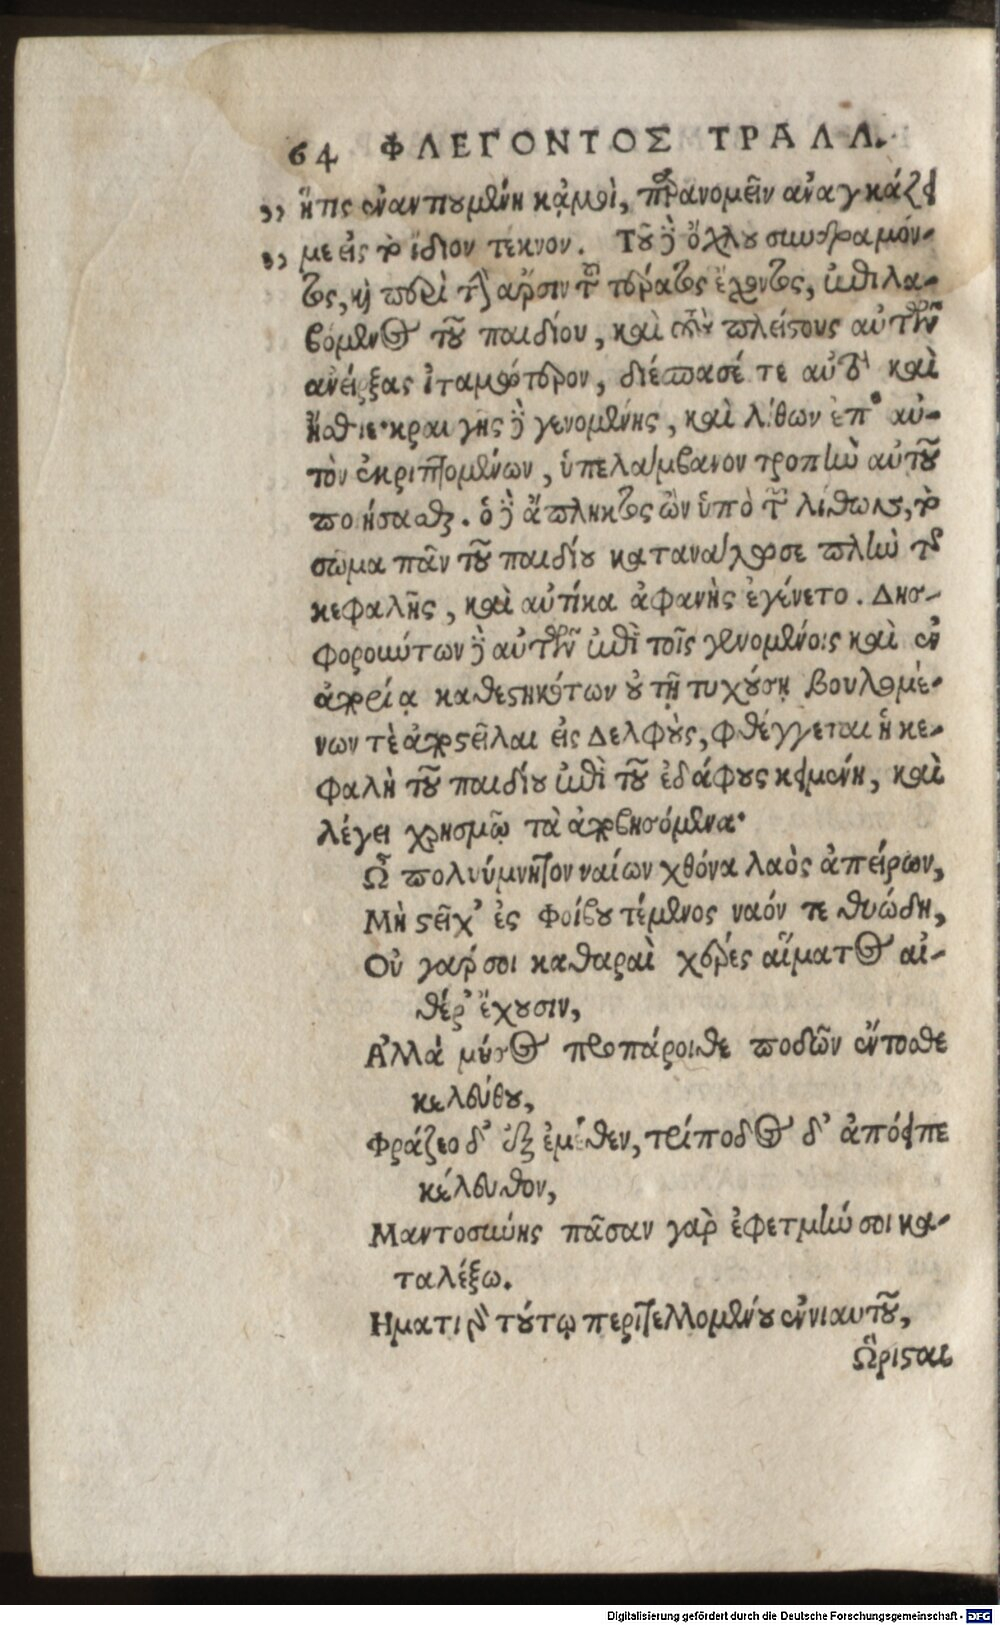 64 ΦΛΕΓΟΝΤΟΣ ΤΡΑΛΛ.
„ ἥτις ἐναντιουμένη κᾀμοὶ, παρανομεῖν ἀναγκάζει
„ με εἰς τὸ ἴδιον τέκνον. Τοῦ δὲ ὄχλου συνδραμόν-
τος, καὶ περὶ τὴν ἄρσιν τοῦ τέρατος ἔχοντος, ἐπιλα-
βόμενος τοῦ παιδίου, καὶ τοὺς πλείστους αὐτῶν
ἀνείρξας ἰταμώτερον, διέσπασέ τε αὐτὸ καὶ
ἤσθιε· κραυγῆς δὲ γενομένης, καὶ λίθων ἐπ' αὐ-
τὸν ἐκριπτομένων, ὑπελάμβανον τροπὴν αὐτοῦ
ποιήσασθαι. ὁ δὲ ἄπληκτος ὢν ὑπὸ τῶν λίθων, τὸ
σῶμα πᾶν τοῦ παιδίου κατανάλωσε πλὴν τῆς
κεφαλῆς, καὶ αὐτίκα ἀφανὴς ἐγένετο. Δυσ-
φορούντων δὲ αὐτῶν ἐπὶ τοῖς γενομένοις καὶ ἐν
ἀπορίᾳ καθεστηκότων οὐ τῇ τυχούσῃ βουλομέ-
νων τὲ ἀποστεῖλαι εἰς Δελφοὺς, φθέγγεται ἡ κε-
φαλὴ τοῦ παιδίου ἐπὶ τοῦ ἐδάφους κειμένη, καὶ
λέγει χρησμῷ τὰ ἀποβησόμενα·
Ὦ πολυύμνητον ναίων χθόνα λαὸς ἀπείρων,
Μὴ στεῖχ' ἐς Φοίβου τέμενος ναόν τε θυώδη,
Οὐ γάρ σοι καθαραὶ χέρες αἵματος αἰ-
θέρ' ἔχουσιν,
Ἀλλὰ μύσος προπάροιθε ποδῶν ἔντοσθε
κελεύθου,
Φράζεο δ' ἐξ ἐμέθεν, τρίποδος δ' ἀπόειπε
κέλευθον,
Μαντοσύνης πᾶσαν γὰρ ἐφετμὴν σοι κα-
ταλέξω.
Ηματι γὰρ τούτῳ περιτελλομένου ἐνιαυτοῦ,
Ὥρισται
Digitalisierung gefördert durch die Deutsche Forschungsgemeinschaft - DFG